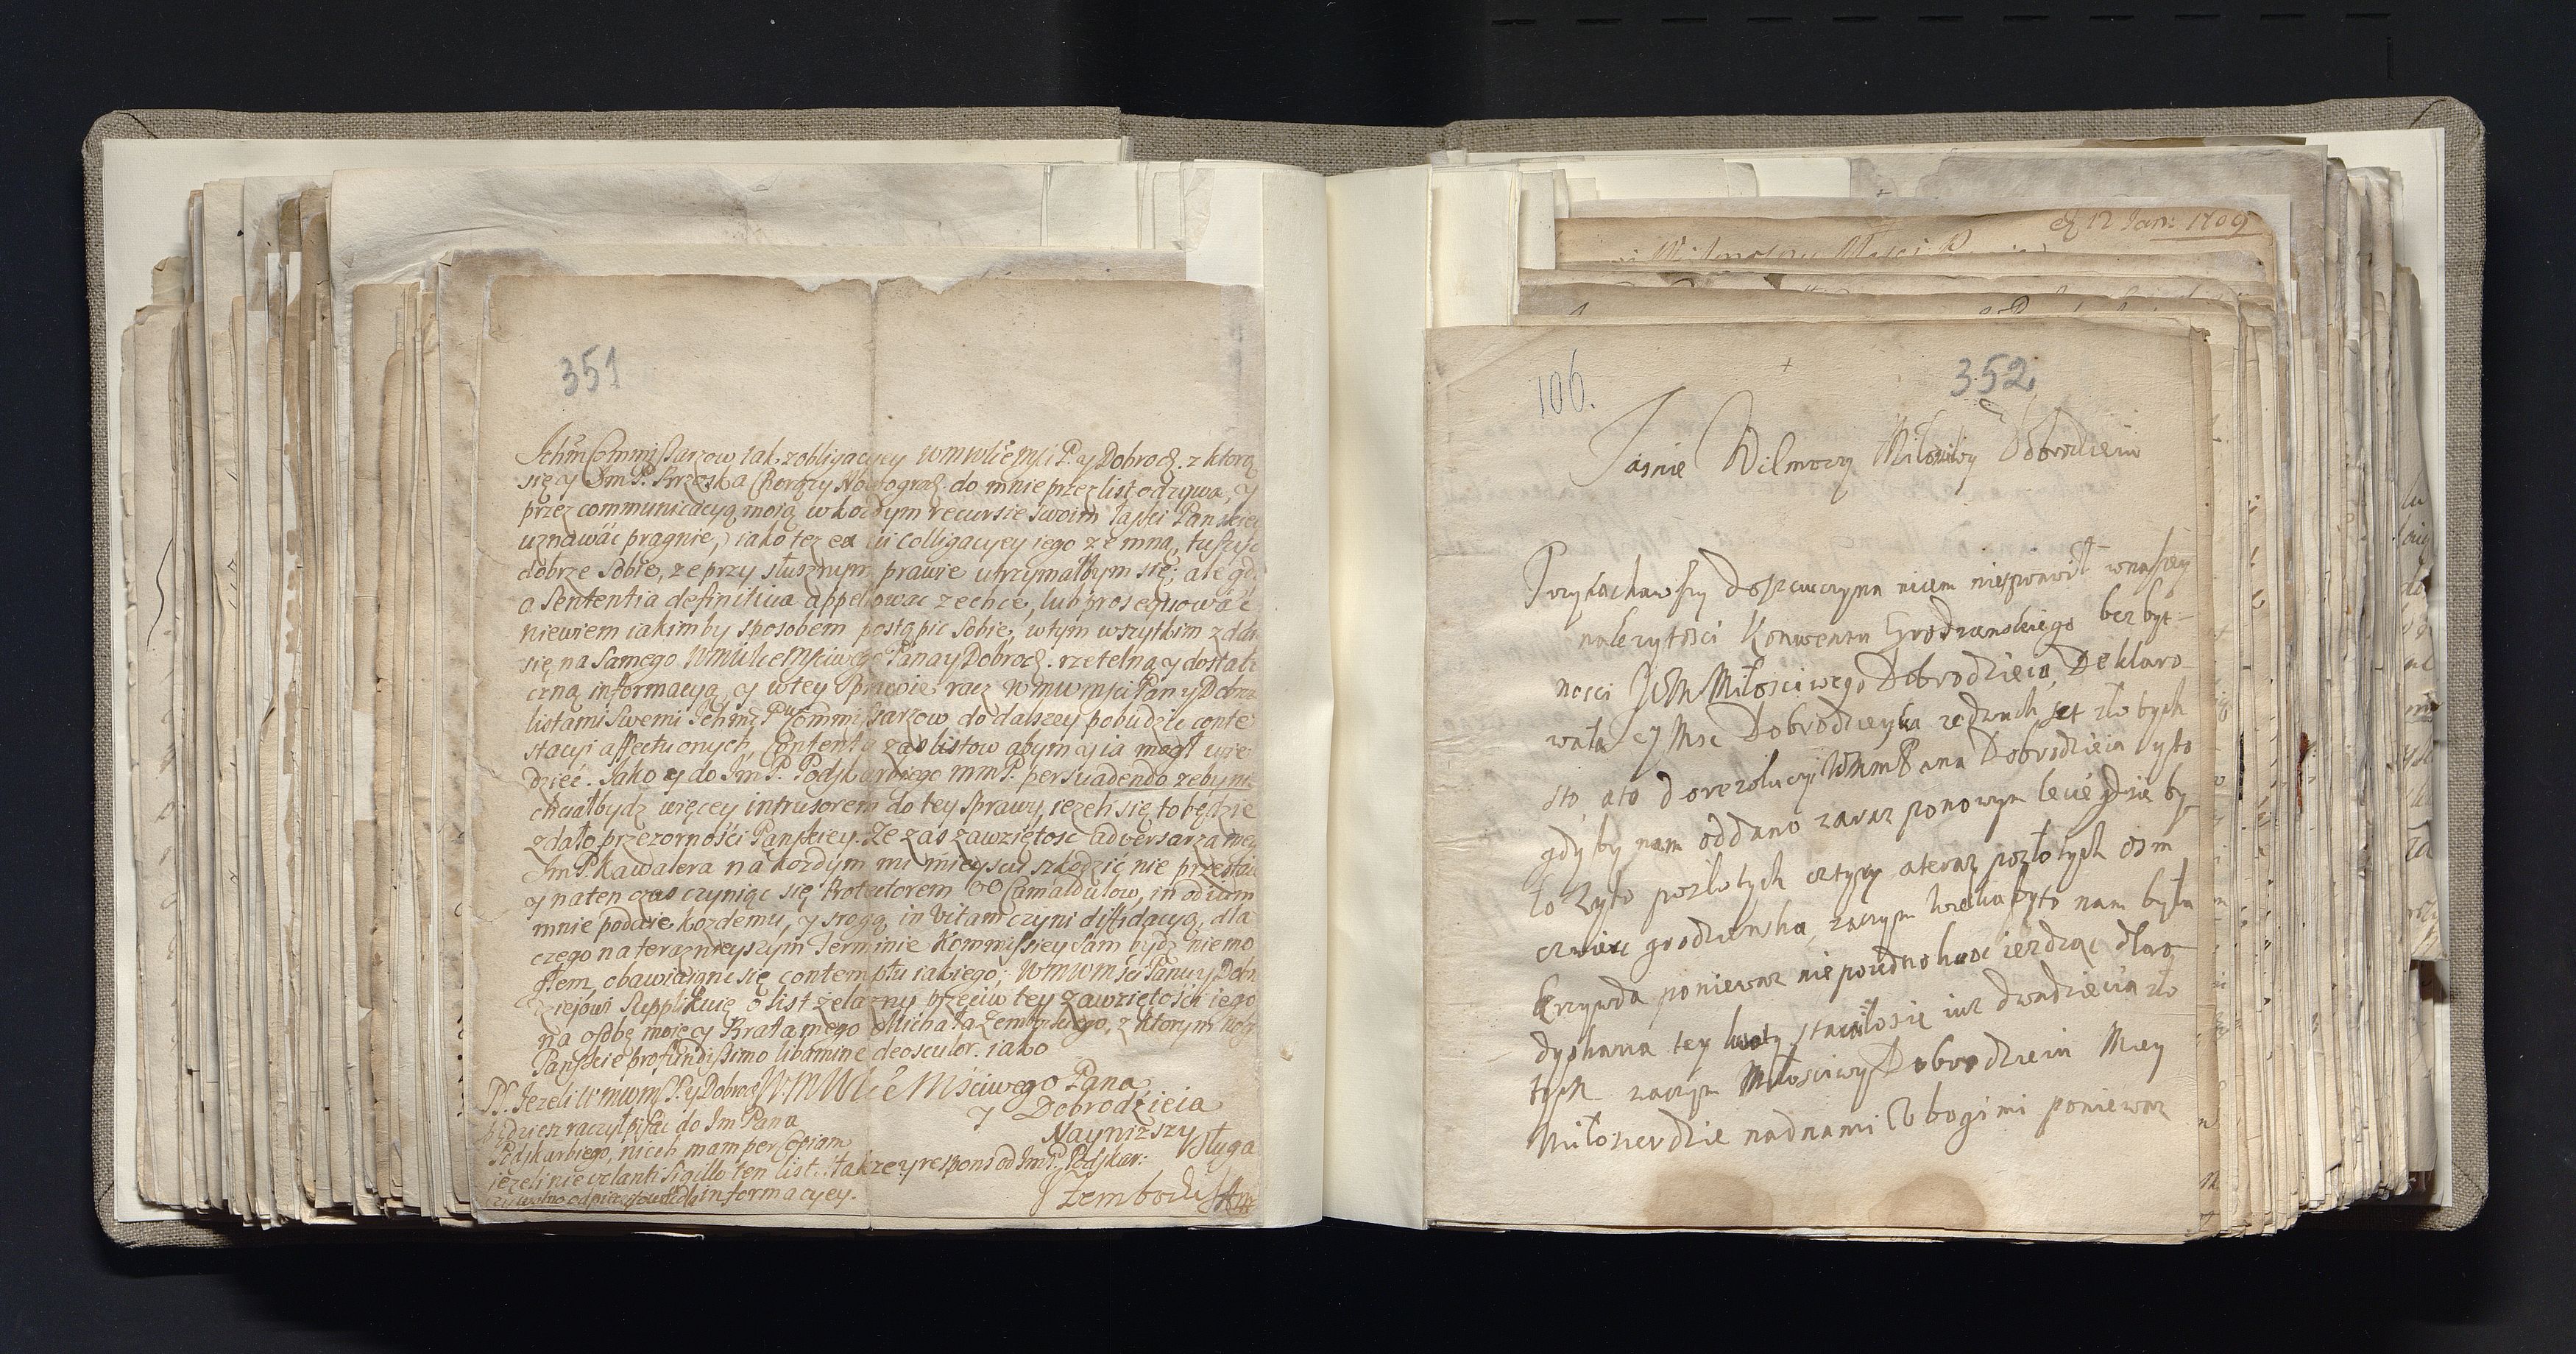 351
Ichm Commissarzow iak z obligacyey WMWHCiE Mści P. y Dobrodź. z ktorą
się y Im P. Brzeska Chorąży Nowogrodź. do mnie przez list odzywa, y
przez communicacyą moią w kozdym recursie swoim łaski Panskiey
uznawać pragnie, iako tez ex vi colligacyey iego ze mną, tuszyć
dobrze sobie, ze przy słusznym prawie utrzymałbym się; ale gdy
a Sententia definitiva appellować zechce, lub prosequować
niewiem iakimby sposobem postąpic sobie, w tym wszytkim zdaię
się na samego Mściwego Pana y Dobrodź. rzetelną y dostate
czną informacyą, y w tey sprawie racz WMWMści Pan y Dobro
listami swemi Ichmć PP Commissarzow do dalszey pobudzić conte
stacyi affectuonych, Contenty zas listow abym y ia mogł wie
dzieć. Jako y do Im P. Podskarbiego mm P. persuadendo zeby nie
chciał bydz więcey intrusorem do tey sprawy, iezeli się to będzie
zdało przezorności Panskiey. Ze zas zawziętosc adversarza mego
Im P. Kawalera na kozdym mi mieyscu szkodzić nie przestaie
y na ten czas czyniąc się Protectorem OO Camaldulow, in odium
mnie podaie kozdemu, y srogą in vitam czyni diffidacyą, dla
czego na teraznieyszym Terminie Kommissiey sam bydz niemo
głem, obawiaiąc się contemptu iakiego; WMWMści Panu y Dobro
dziejowi Supplikuię o list zelazny przeciw tey zawziętości iego
na osobę moię y Brata mego Michała Zembockiego, z ktorym nogi
Panskie profundissimo libamine deosculor. iako
WMWHCiE Mściwego Pana
y Dobrodzieia
Nayniższy Sługa
PS. Iezeli WMWMś P. y Dobrodź
będziesz raczył pisac do Im Pana
Podskarbiego, niech mam per Copiam
iezeli nie volanti Sigillo ten list. takze y respons od Im P. Podskar:
informacyey.
Zembocki
ej 12 Jan: 1709
106.
352.
Jasnie Wilmozny Miłosciwy Dobrodzieiu
Przyiachawszy do Szczuczyna nicem niesprawił w naszey
nalezytosci Konwentu Grodzenskiego bez byt-
nosci JWM Miłosciwego Dobrodzieia, Deklaro-
wała ey Msc Dobrodzieyka ze dwuch set złotych
sto, a to do rezolucyi WMM Pana Dobrodzieia zyto
gdy by nam oddano zaraz ponowym lecie gdzie by-
ło zyto po złotych cztyry a teraz po złotych osm
czwierc grodzenska, zaczym wielka by to nam była
krzywda poniewaz nie poiednokroc iezdząc dla o-
dyskania tey kwoty stawiło sie iuz dwadziescia zło
tych zaczym Miłosciwy Dobrodzieiu Miey
Miłosierdzie nad nami Ubogimi poniewaz